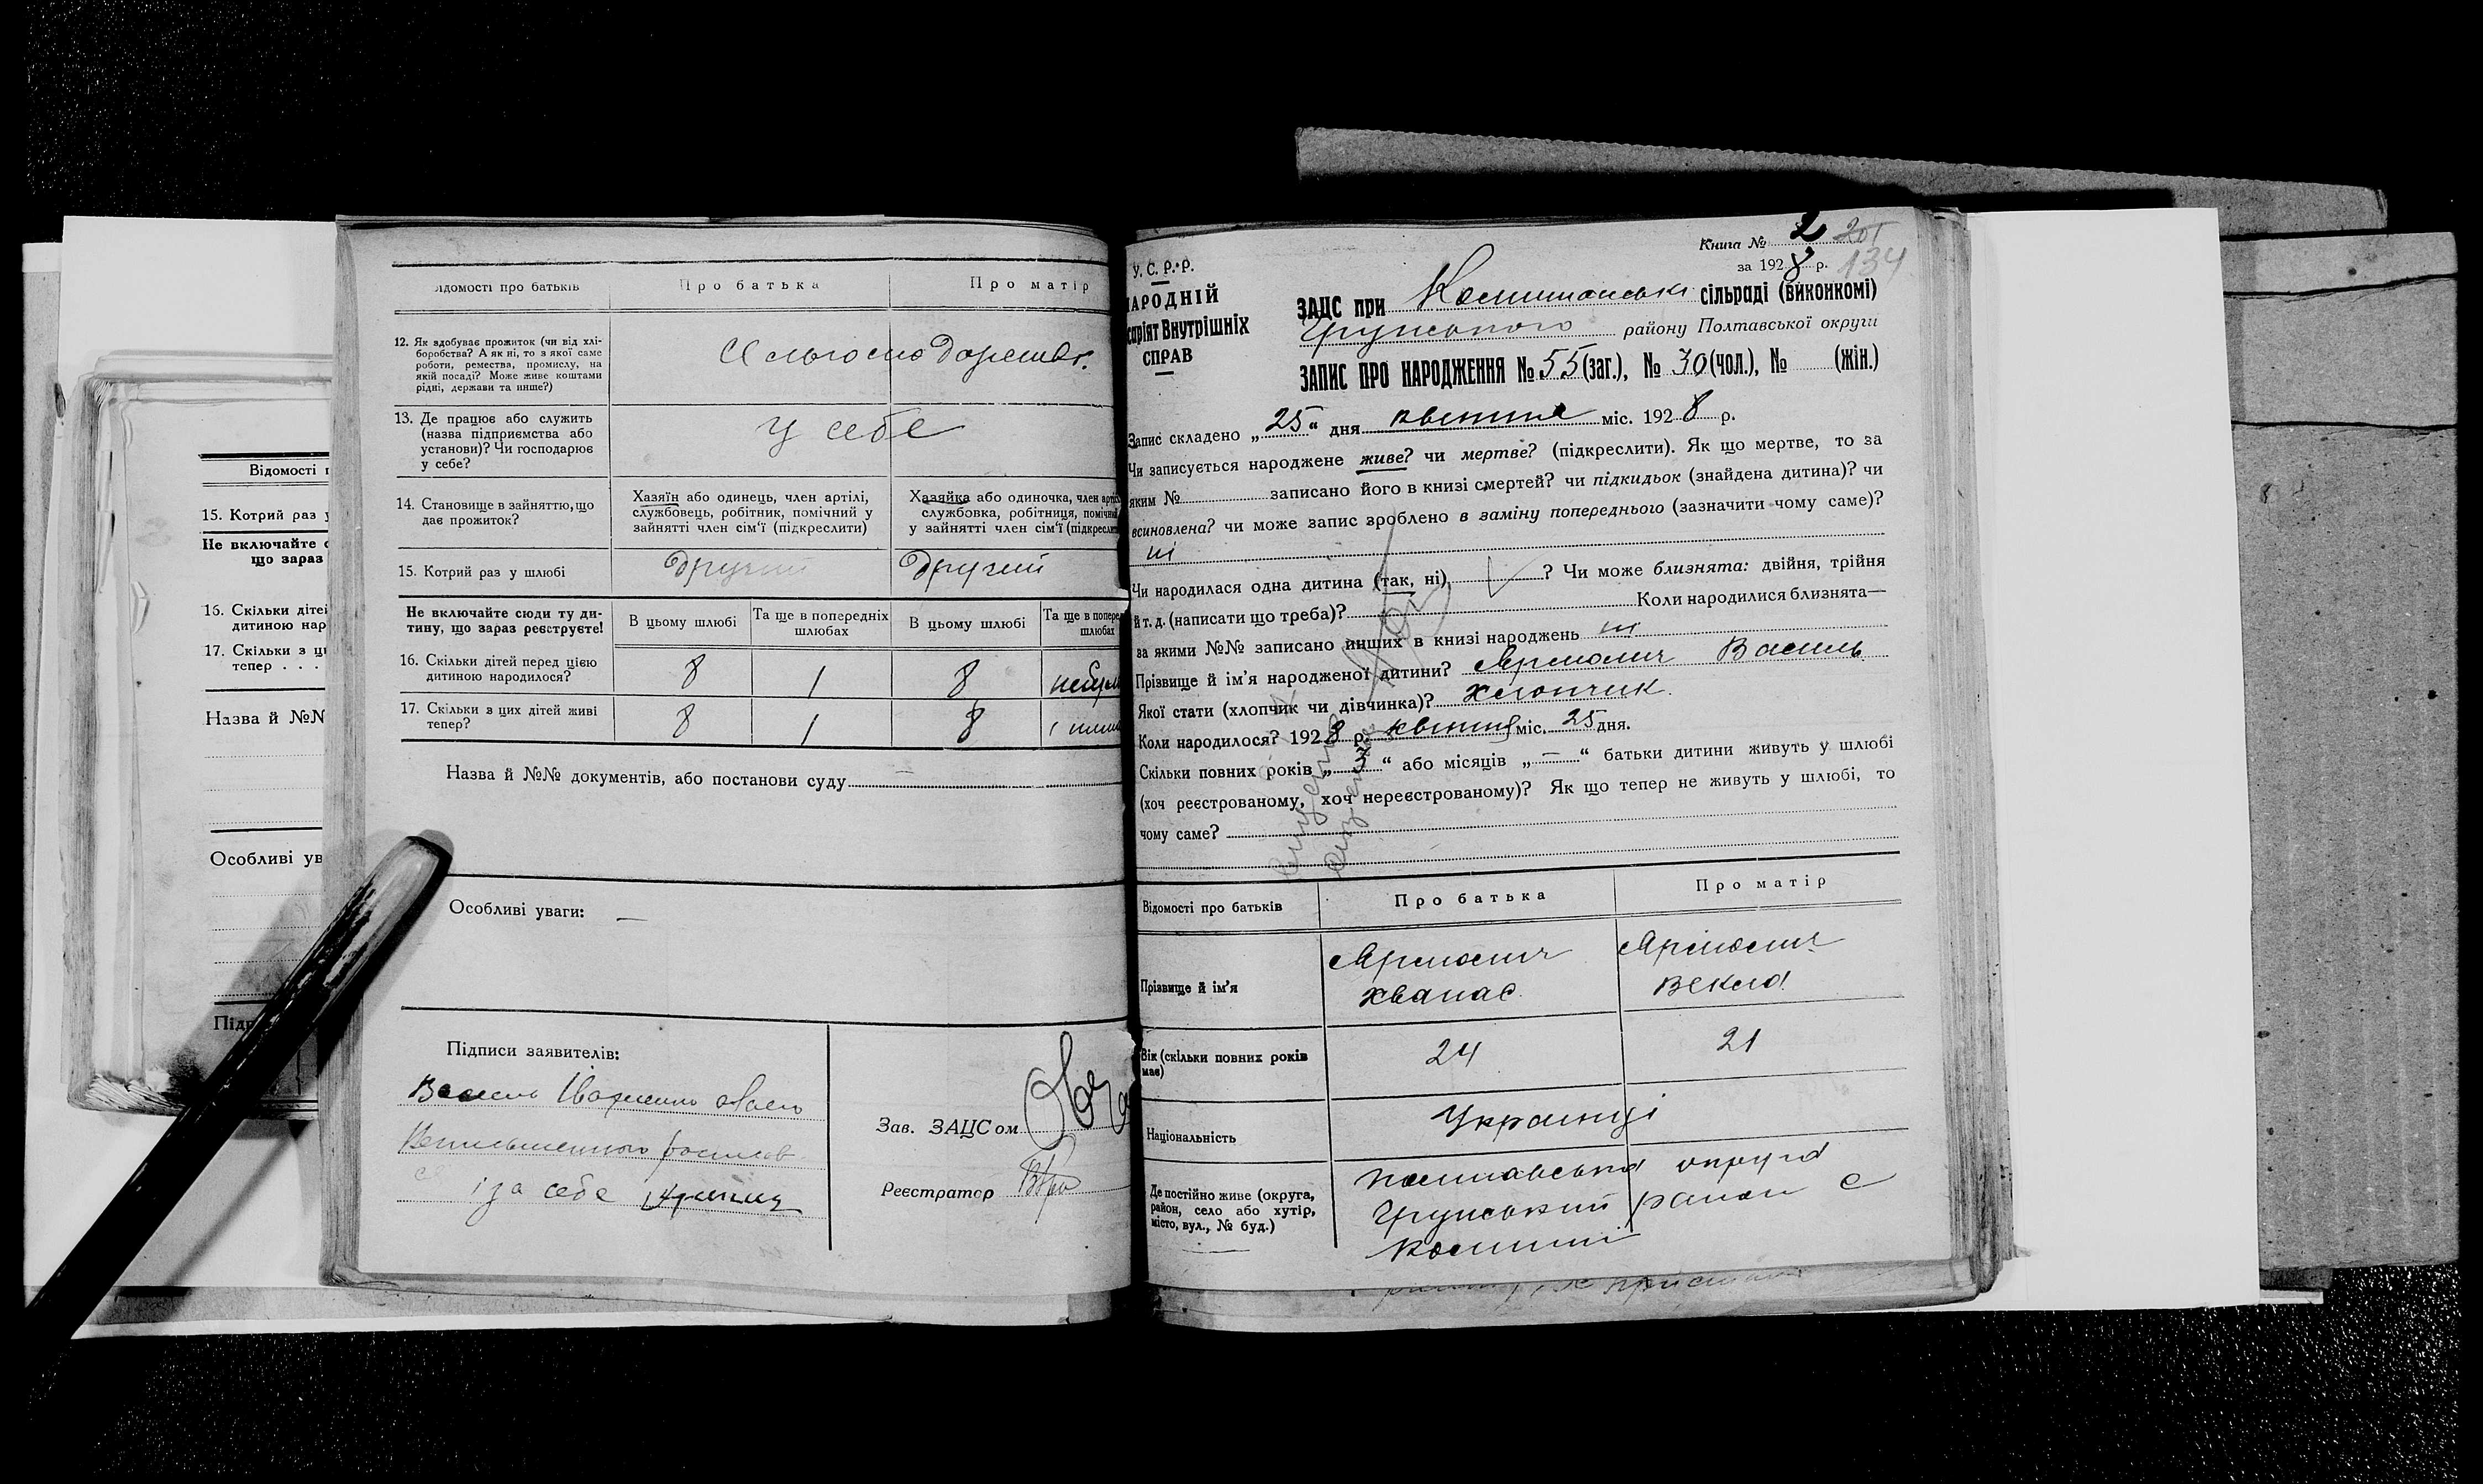 Відомості п
15. Котрий раз у
Не включайте с
що зараз
16. Скільки дітей
дитиною нар
17. Скільки з ци
тепер . . .
Назва й №№
Особливі ув
Підп
відомості про батьків Про батька Про матір
12. Як здобуває прожиток (чи від хлі-
боробства? А як ні, то з якої саме
роботи, ремества, промислу, на
якій посаді? Може живе коштами
рідні, держави та инше?)
13. Де працює або служить
(назва підприємства або
установи)? Чи господарює
у себе?
у себе
14. Становище в зайняттю, що
дає прожиток?
Хазяїн або одинець, член артілі,
службовець, робітник, помічний у
зайнятті член сім'ї (підкреслити)
Хазяйка або одиночка, член артіл
службовка, робітниця, помічний
у зайнятті член сім'ї (підкреслити
15. Котрий раз у шлюбі другий другий
Не включайте сюди ту ди-
тину, що зараз реєструєте!
В цьому шлюбі Та ще в попередніх шлюбах В цьому шлюбі Та ще в поперед шлюбах
16. Скільки дітей перед цією
дитиною народилося?
8 1 8
17. Скільки з цих дітей живі
тепер?
8 1 8
Назва й №№ документів, або постанови суду
Особливі уваги: —
Підписи заявителів:
Василь
і за себе
Зав. ЗАЦСом
Реєстратор
У. С. Р. Р.
НАРОДНІЙ
саріят Внутрішніх
СПРАВ
Книга № 2 201
за 1928 р. 134
ЗАЦС при сільраді (виконкомі)
Грунського району Полтавської округи
ЗАПИС ПРО НАРОДЖЕННЯ № 55 (заг.), № 30 (чол.), № (жін.)
Запис складено „25“ дня квітня міс. 1928 р.
Чи записується народжене живе? чи мертве? (підкреслити). Як що мертве, то за
яким № записано його в книзі смертей? чи підкидьок (знайдена дитина)? чи
всиновлена? чи може запис зроблено в заміну попереднього (зазначити чому саме)?
ні
Чи народилася одна дитина (так, ні), ? Чи може близнята: двійня, трійня
й т. д. (написати що треба)? Коли народилися близнята—
за якими №№ записано инших в книзі народжень ні
Прізвище й ім'я народженої дитини? Ярмолич Василь
Якої стати (хлопчик чи дівчинка)? хлопчик.
Коли народилося? 1928 р. квітня міс. 25 дня.
Скільки повних років „3“ або місяців „—“ батьки дитини живуть у шлюбі
(хоч реєстрованому, хоч нереєстрованому)? Як що тепер не живуть у шлюбі, то
чому саме?
Відомості про батьків Про батька Про матір
Прізвище й ім'я
Ярмолич Ярмолич
Хванас Векла
Вік (скільки повних років
має)
24 21
Національність Українці
Де постійно живе (округа,
район, село або хутір,
місто, вул., № буд.)
Полтавська округа
Грунський район с